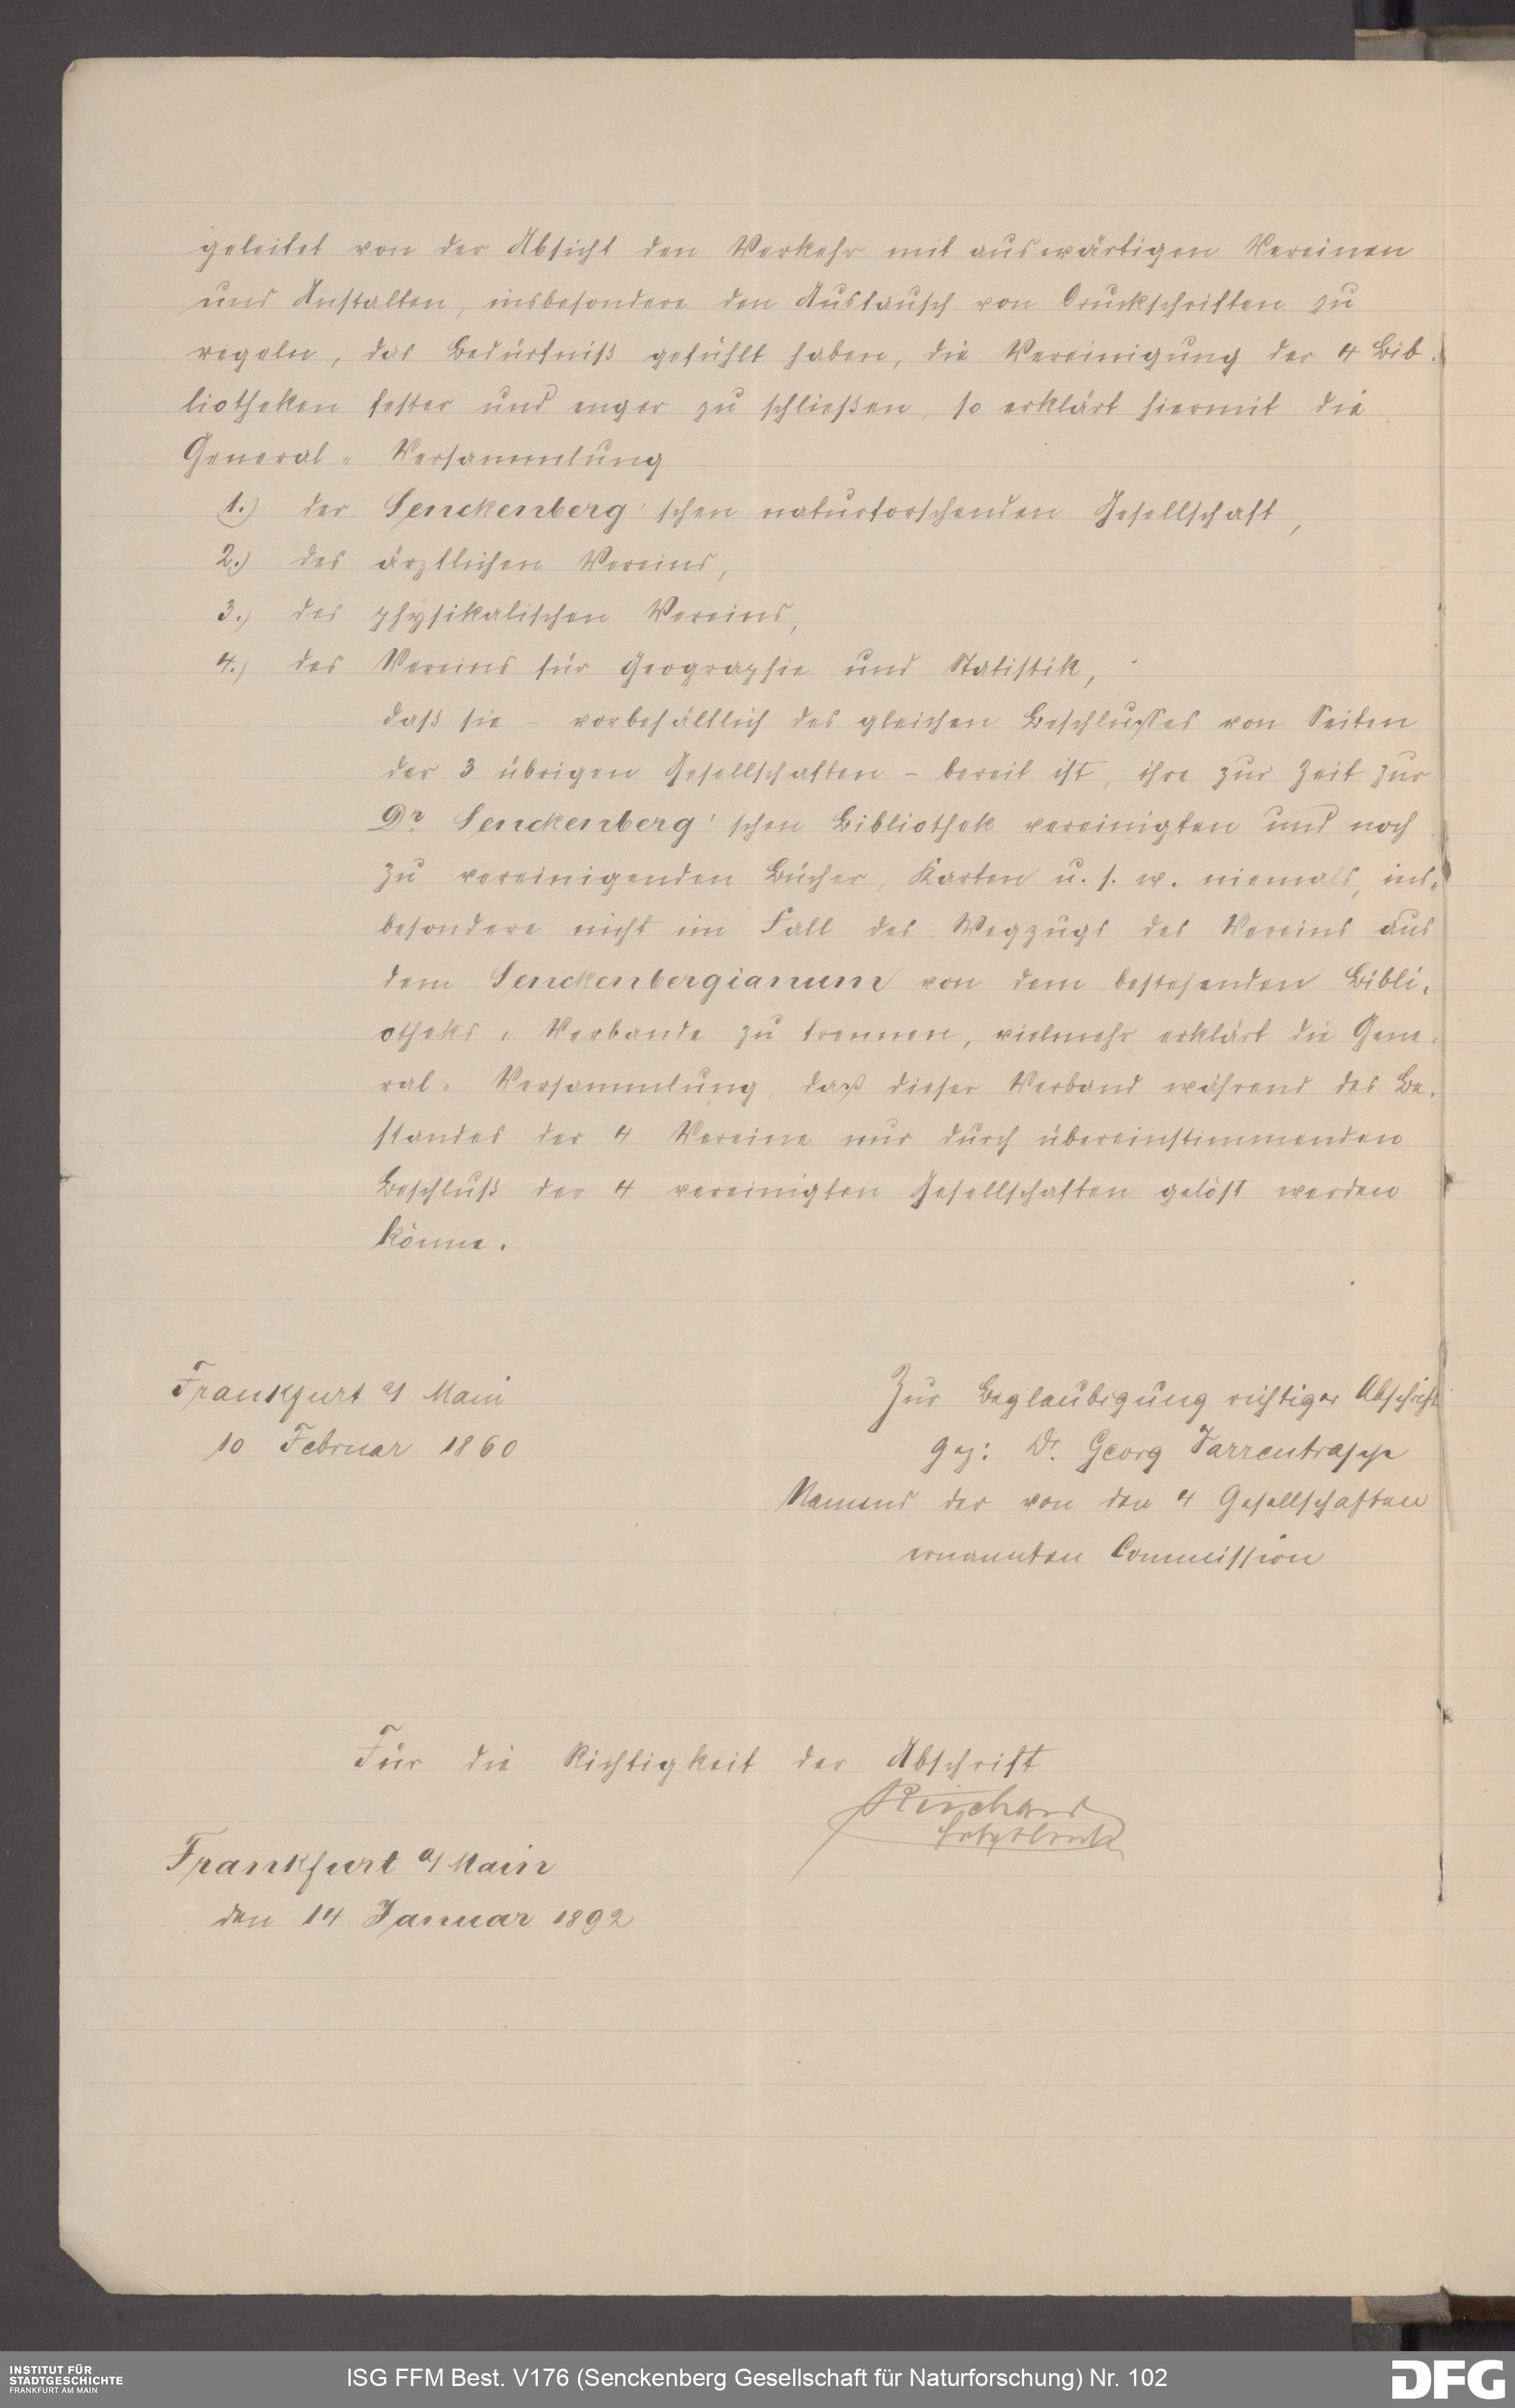 geleitet von der Absicht den Verkehr mit auswärtigen Vereinen
und Anstalten, insbesondere den Austausch von Druckschriften zu
regeln, das Bedürfniß gefühlt haben, die Vereinigung der 4 Bib-
liotheken fester und enger zu schließen, so erklärt hiermit die
General-Versammlung
1.) der Senckenberg'schen naturforschenden Gesellschaft,
2.) des ärztlichen Vereins,
3.) des physikalischen Vereins,
4.) des Vereins für Geographie und Statistik,
daß sie – vorbehältlich des gleichen Beschlusses von Seiten
der 3 übrigen Gesellschaften – bereit ist, ihre zur Zeit zur
Dr Senckenberg'schen Bibliothek vereinigten und noch
zu vereinigenden Bücher, Karten u. s. w. niemals, ins-
besondere nicht im Fall des Wegzugs des Vereins aus
dem Senckenbergianum von dem bestehenden Bibli-
otheks-Verbande zu trennen, vielmehr erklärt die Gene-
ral-Versammlung, daß dieser Verband während des Be-
standes der 4 Vereine nur durch übereinstimmenden
Beschluß der 4 vereinigten Gesellschaften gelöst werden
könne.
Frankfurt a/ Main
10 Februar 1860
Zur Beglaubigung richtiger Abschrift
gez: Dr. Georg Varrentrapp
Namens der von den 4 Gesellschaften
ernannten Commission
Für die Richtigkeit der Abschrift
Frankfurt a/ Main
den 14 Januar 1892
INSTITUT FÜR
STADTGESCHICHTE
FRANKFURT AM MAIN
ISG FFM Best. V176 (Senckenberg Gesellschaft für Naturforschung) Nr. 102
DFG